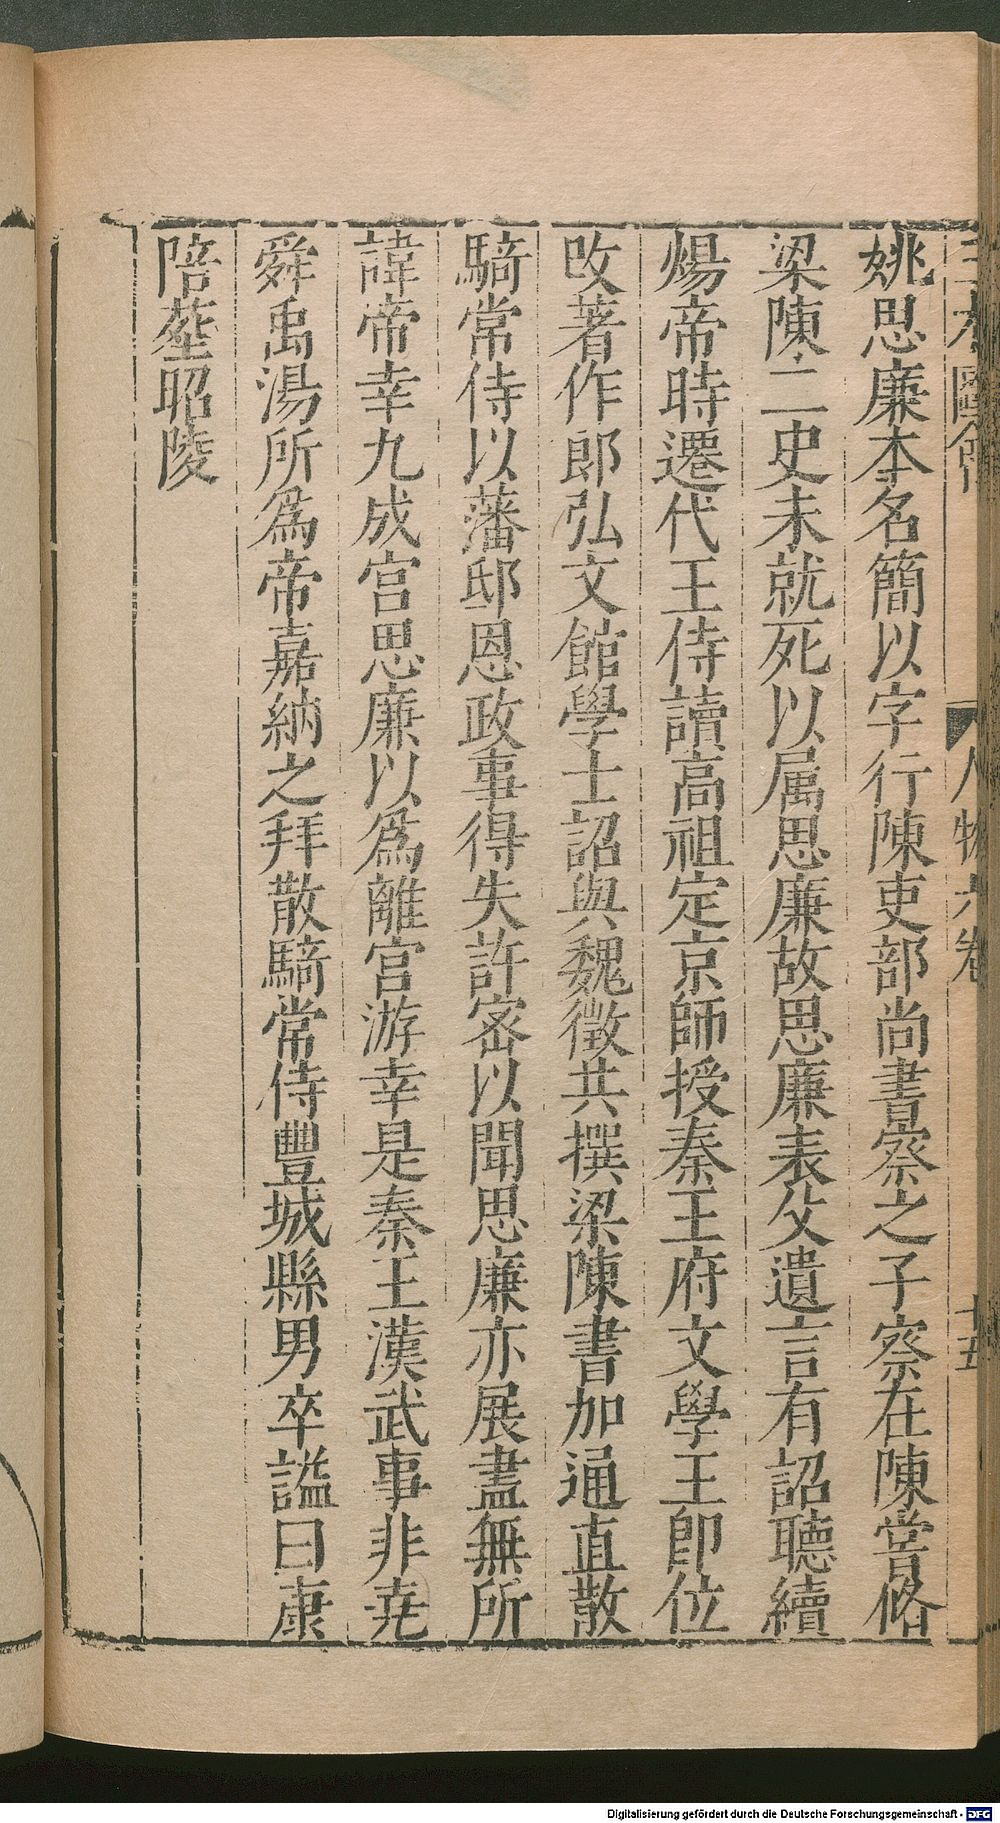 三才圖會
人物六卷
十五
姚思廉本名簡以字行陳吏部尚書察之子察在陳嘗脩
梁陳二史未就死以属思廉故思廉表父遺言有詔聽續
煬帝時遷代王侍讀高祖定京師授秦王府文學王卽位
改著作郎弘文館學士詔與魏徵共撰梁陳書加通直散
騎常侍以藩邸恩政事得失許密以聞思廉亦展盡無所
諱帝幸九成宫思廉以爲離宫游幸是秦王漢武事非尭
舜禹湯所爲帝嘉納之拜散騎常侍豐城縣男卒謚曰康
陪塟昭陵
Digitalisierung gefördert durch die Deutsche Forschungsgemeinschaft - DFG